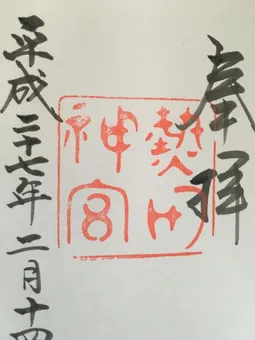 奉拝
熱田
神宮
平成二十七年二月十四